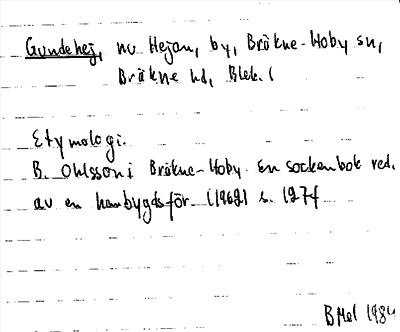 Gundehej, nu Hejan, by, Bräkne-Hoby sn,
Bräkne hd, Blek. l
Etymologi.
B. Ohlsson i Bräkne-Hoby. En sockenbok red.
av en hembygdsför. (1962) s. 197f
BMel 1984